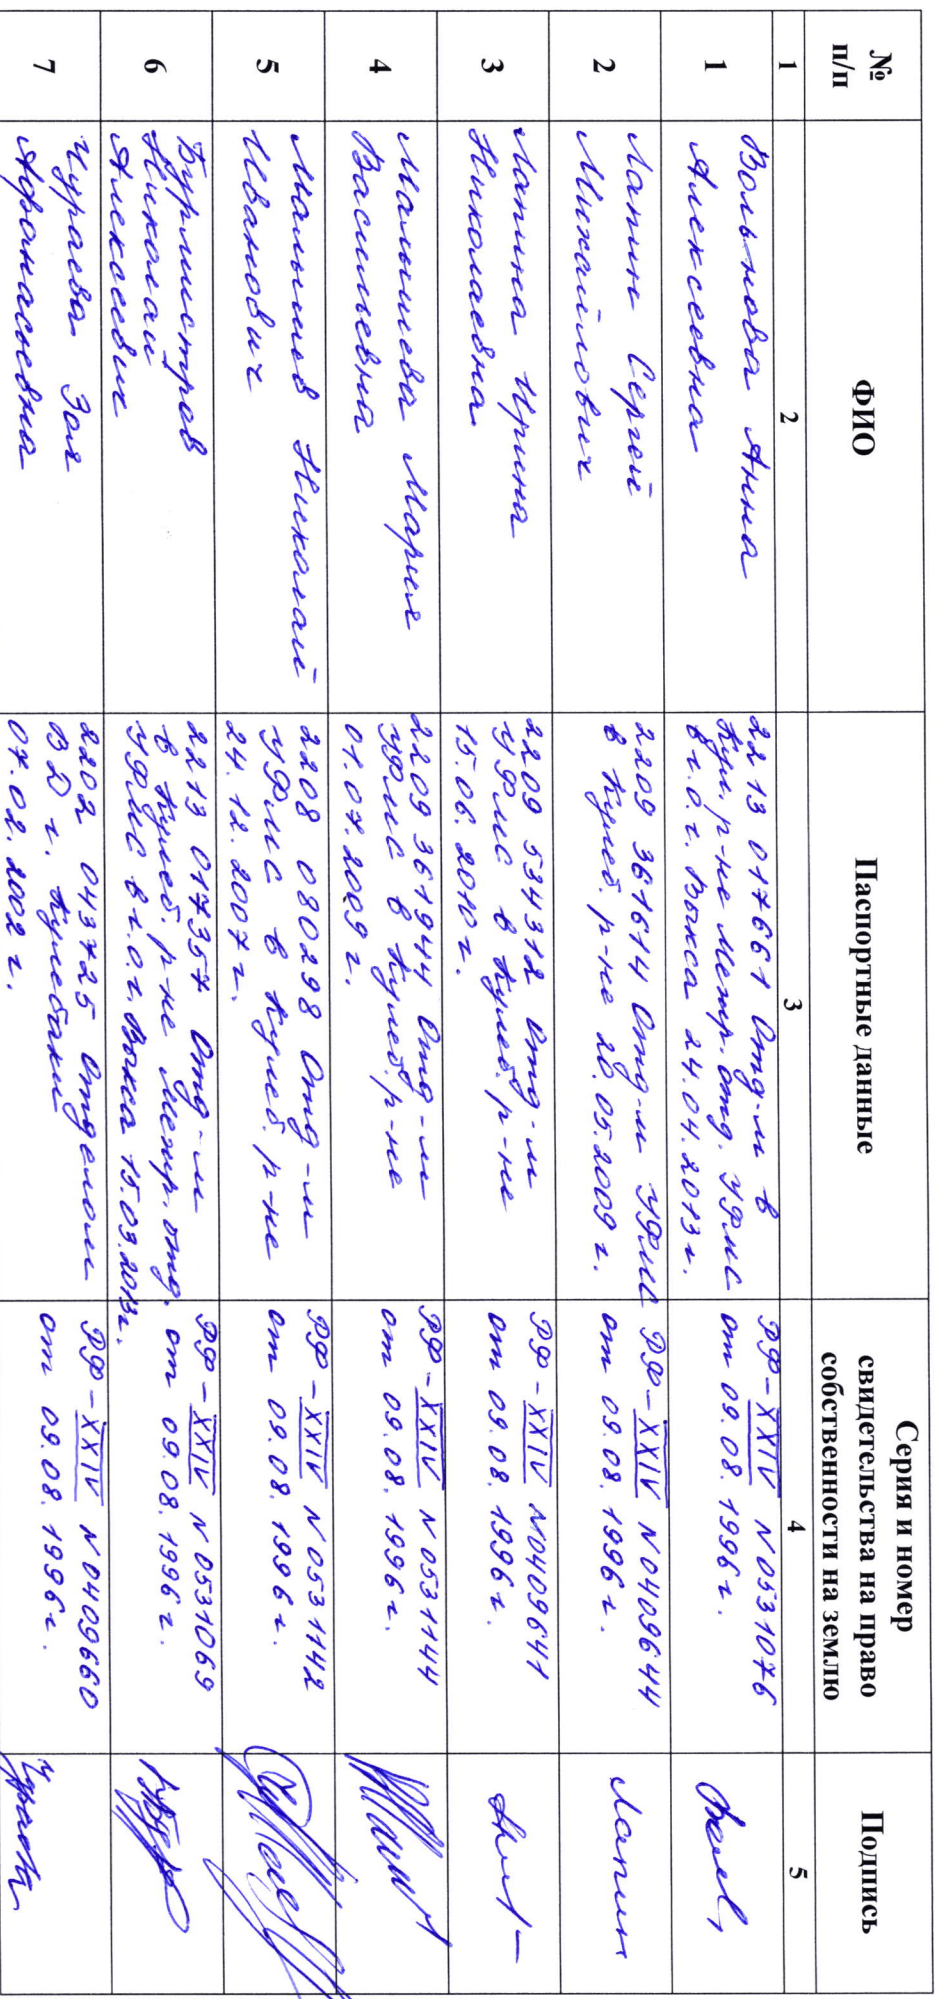 № п/п
ФИО
Паспортные данные
Серия и номер
свидетельства на право
собственности на землю
Подпись
1
2
3
4
5
1
Вольнова Анна
Алексеевна
2213 017661 Отд-м в
Кул. р-не Межр. отд. УФМС
в г.о.г. Выкса 24.04.2013г.
РФ-XXIV N 0531076
от 09.08.1996г.
2
Лапин Сергей
Михайлович
2209 361614 Отд-м УФМС
в Кулеб. р-не 20.05.2009г.
РФ-XXIV N 0409644
от 09.08.1996г.
Лапин
3
Лапина Ирина
Николаевна
2209 534312 Отд-м
УФМС в Кулеб. р-не
15.06.2010г.
РФ-XXIV N0409641
от 09.08.1996г.
4
Малышева Мария
Васильевна
2209 361944 Отд-м
УФМС в Кулеб. р-не
01.07.2009г.
РФ-XXIV N 0531144
от 09.08.1996г.
5
Малышев Николай
Иванович
2208 080298 Отд-м
УФМС в Кулеб. р-не
24.12.2007г.
РФ-XXIV N 0531142
от 09.08.1996г.
6
Бурмистров
Николай
Алексеевич
2213 017357 Отд-м
в Кулеб. р-не Межр. отд.
УФМС в г.о.г. Выкса 15.03.2013г.
РФ-XXIV N 0531069
от 09.08.1996г.
7
Чураева Зоя
Афанасьевна
2202 043725 Отделом
ВД г. Кулебаки
07.02.2002г.
РФ-XXIV N 0409660
от 09.08.1996г.